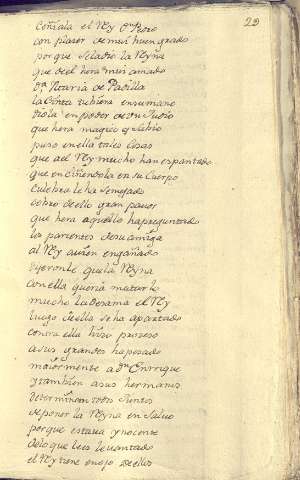 29
Consuela el Rey Dn Pedro
con plazer de muy buen grado
porque se la dio la Reyna
que del hera mui amado
Da Maria de Padilla
la Cinta tubiera en su mano
en poder de un Judio
que hera magico y sabio
puso en ella tales cosas
que al Rey mucho han espantado
que en ciñendola en su Cuerpo
Culebra le ha semejado
dello gran pavor
que hera aquello ha preguntado
los parientes de su amiga
al Rey avien engañado
dijeronle que la Reyna
con ella queria matarlo
mucho la desama el Rey
luego della se ha apartado
contra ella hizo proceso
a sus grandes ha pesado
maiormente a Dn Enrrique
y tambien a sus hermanos
determinaron todos Juntos
de poner la Reyna en Salvo
porque estava ynocente
de lo que le es levantado
el Rey tiene enojo dellos